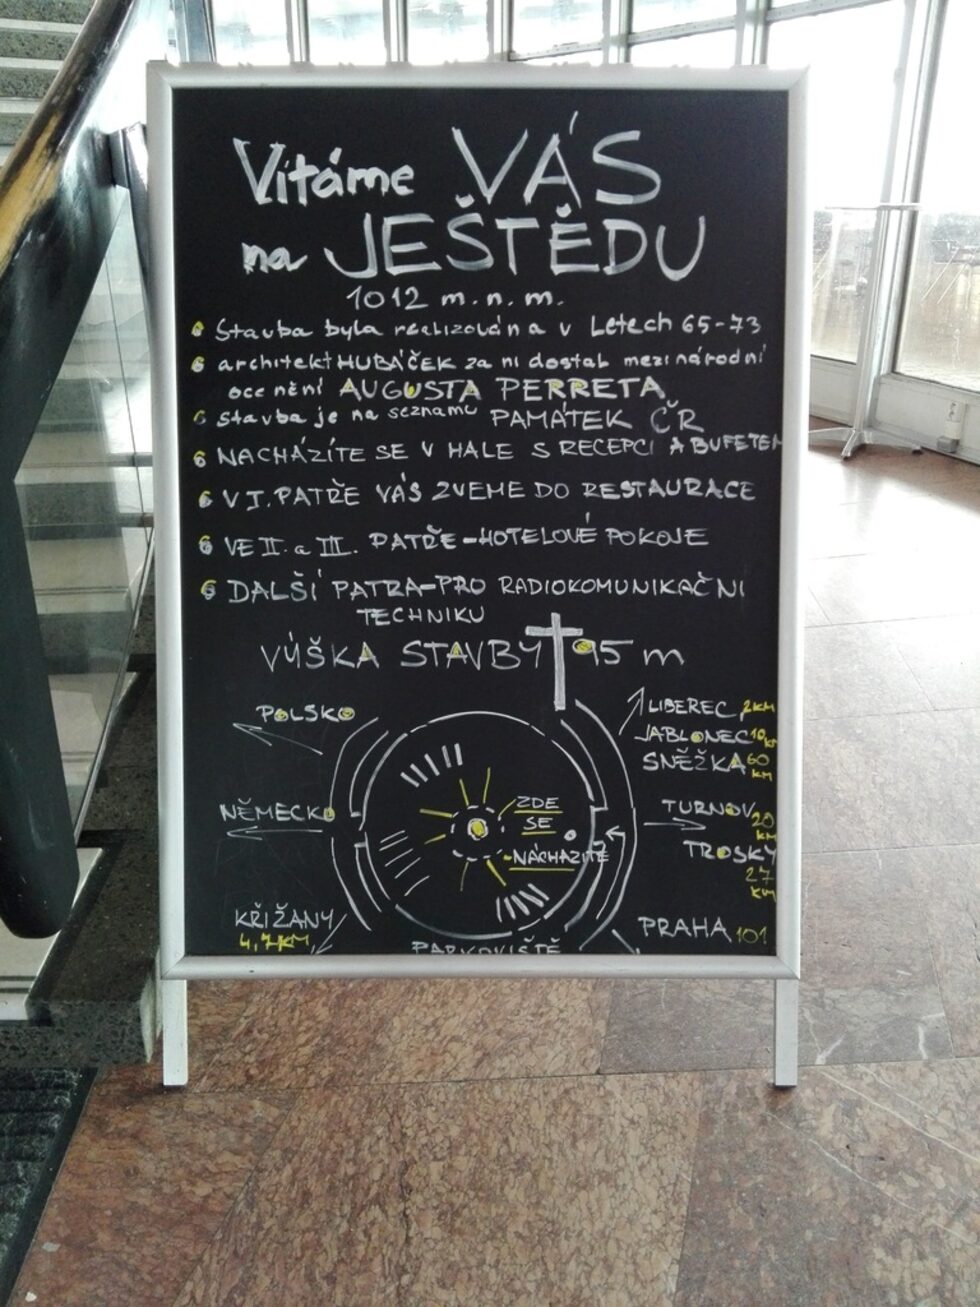 Vítáme VÁS
na JEŠTĚDU
1012 m.n.m.
Stavba byla realizována v Letech 65-73
architekt HUBÁČEK za ni dostal mezinárodní
ocenění AUGUSTA PERRETA
Stavba je na seznamu PAMÁTEK ČR
NACHÁZÍTE SE V HALE S RECEPCÍ A BUFETEM
V I. PATŘE VÁS ZVEME DO RESTAURACE
VE II. a III. PATŘE-HOTELOVÉ POKOJE
DALŠÍ PATRA-PRO RADIOKOMUNIKAČNI
TECHNIKU
VÝŠKA STAVBY 95 m
POLSKO
LIBEREC 2KM
JABLONEC 10 KM
SNĚŽKA 60 KM
NĚMECKO
ZDE
SE
NACHÁZÍTE
TURNOV 20 KM
TROSKY 27 KM
KŘIŽANY
4,7KM
PARKOVIŠTĚ
PRAHA 101